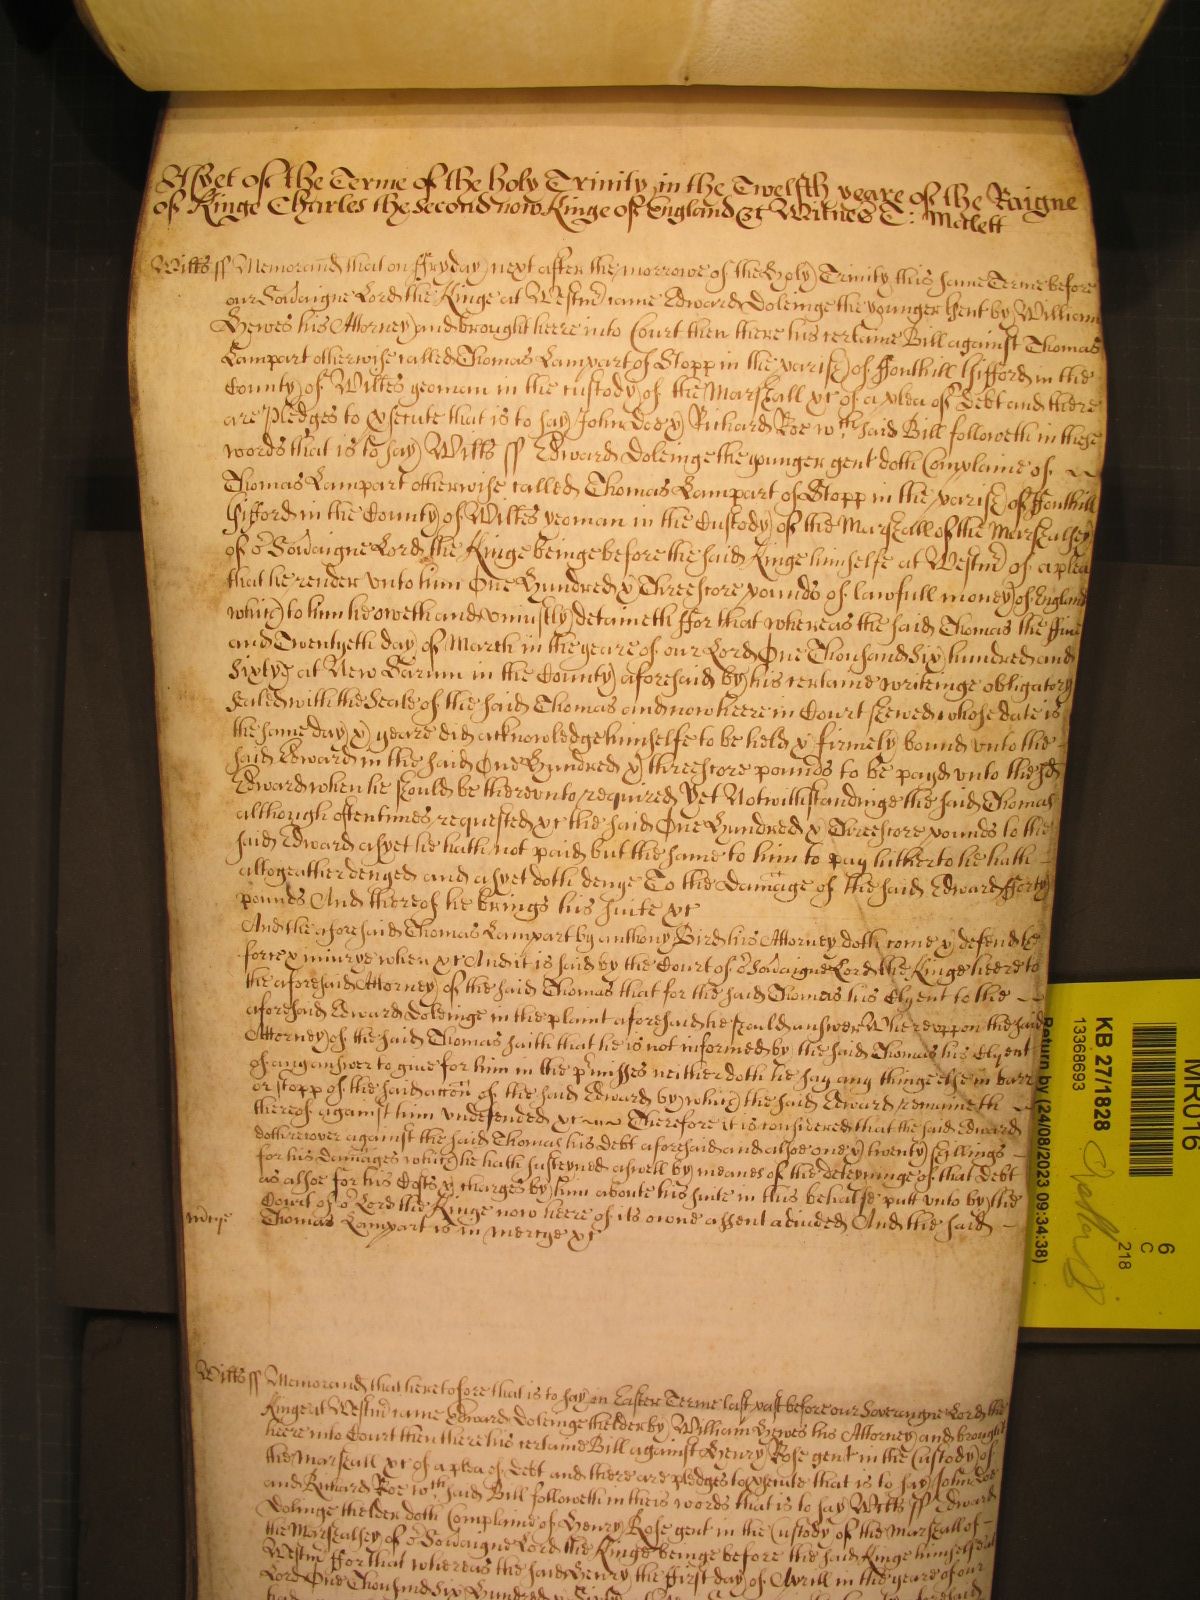 As yet of the Terme of the holy Trinity in the Twelfth yeare of the Raigne
of Kinge Charles the second now Kinge of England &c Witnes T: Mallett
Wiltss ss Memorand that on ffryday next after the morrowe of the Holy Trinity this same Terme before
our Sovaigne Lord the Kinge at Westm̃ came Edward Doleinge the younger gent by William
Hewes his Attorney and brought heere into Court then there his certaine Bill against Thomas
Lampart otherwise called Thomas Lampart of Stopp in the parish of ffonthill Gifford in the
County of Wiltes yeoman in the custody of the Marshall &c of a plea of Debt and there
are pledges to Execute that is to say John Doe & Richard Roe wch said Bill followeth in these
words that is to say Wiltss ss Edward Doleinge the younger gent doth Complaine of
Thomas Lampart otherwise called Thomas Lampart of Stopp in the parish of ffonthill
Gifford in the County of Wiltes yeoman in the Custody of the Marshall of the Marshalsey
of or Sovaigne Lord the Kinge beinge before the said Kinge himselfe at Westm̃ of a plea
that he render unto him One Hundred & Threescore pounds of lawfull money of England
which to him he oweth and uniustly detaineth ffor that whereas the said Thomas the ffive
and Twentyeth day of March in the yeare of our Lord One Thousand Six hundred and
Sixty at New Sarum in the County aforesaid by his certaine writeinge obligatory
sealed with the Seale of the said Thomas and now heere in Court shewed whose date is
the same day & yeare did acknowledge himselfe to be held & firmely bound unto the
said Edward in the said One Hundred & threescore pounds to be payd unto the sd
Edward when he should be thereunto required Yet Notwithstandinge the said Thomas
although oftentimes requested &c the said One Hundred & Threescore pounds to the
said Edward as yet he hath not paid but the same to him to pay hitherto he hath
altogeather denyed and as yet doth denye To the Damage of the said Edward fforty
pounds And thereof he brings his suite &c
And the aforesaid Thomas Lampart by anthony Bird his Attorney doth come & defend the
force & iniurye when &c And it is said by the Court of or Sovaigne Lord the Kinge heere to
the aforesaid Attorney of the said Thomas that for the said Thomas his Clyent to the
aforesaid Edward Doleinge in the plaint aforesaid he should answer Whereuppon the said
Attorney of the said Thomas saith that he is not informed by the said Thomas his Clyent
of any answer to give for him in the p̃misses neither doth he say any thinge else in barr
or stopp of the said accõn of the said Edward by which the said Edward remaineth
thereof against him undefended &c Therefore it is considered that the said Edward
doth recover against the said Thomas his Debt aforesaid and alsoe one & twenty shillings
for his Damages which he hath susteyned aswell by meanes of the deteyninge of that Debt
as alsoe for his Costs & charges by him aboute his suite in this behalfe putt unto by the
Court of or Lord the Kinge now heere of its owne assent adiudged And the said
mercye Thomas Lampart is in mercye &c
Wiltss ss Memorand that heretofore that is to say in Easter Terme last past before our Soveraigne Lord the
Kinge at Westm̃ came Edward Doleinge thelder by William Hewes his Attorney and brought
heere into Court then there his certaine Bill against Henry Rose gent in the Custody of
the Marshall &c of a plea of Debt and there are pledges to Execute that is to say John Doe
and Richard Roe wth said Bill followeth in theis words that is to say Wiltss ss Edward
Dolinge thelder doth Complaine of Henry Rose gent in the Custody of the Marshall of
the Marshalsey of or Sovaigne Lord the Kinge beinge before the said Kinge himselfe at
Westm̃ ffor that whereas the said Henry the ffirst day of Aprill in the yeare of our
Lord One Thousand Six Hundred & Sixty
MR016
6
C
218
KB 27/1828
13368693
Return by (24/08/2023 09:34:38)